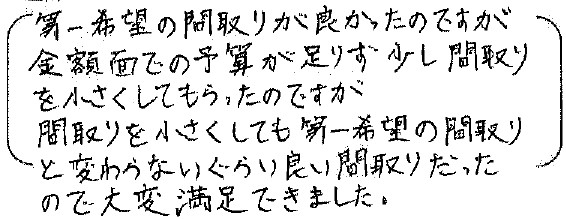 第一希望の間取りが良かったのですが
金額面での予算が足りず少し間取り
を小さくしてもらったのですが
間取りを小さくしても第一希望の間取り
と変わらないぐらい良い間取りだった
ので大変満足できました。